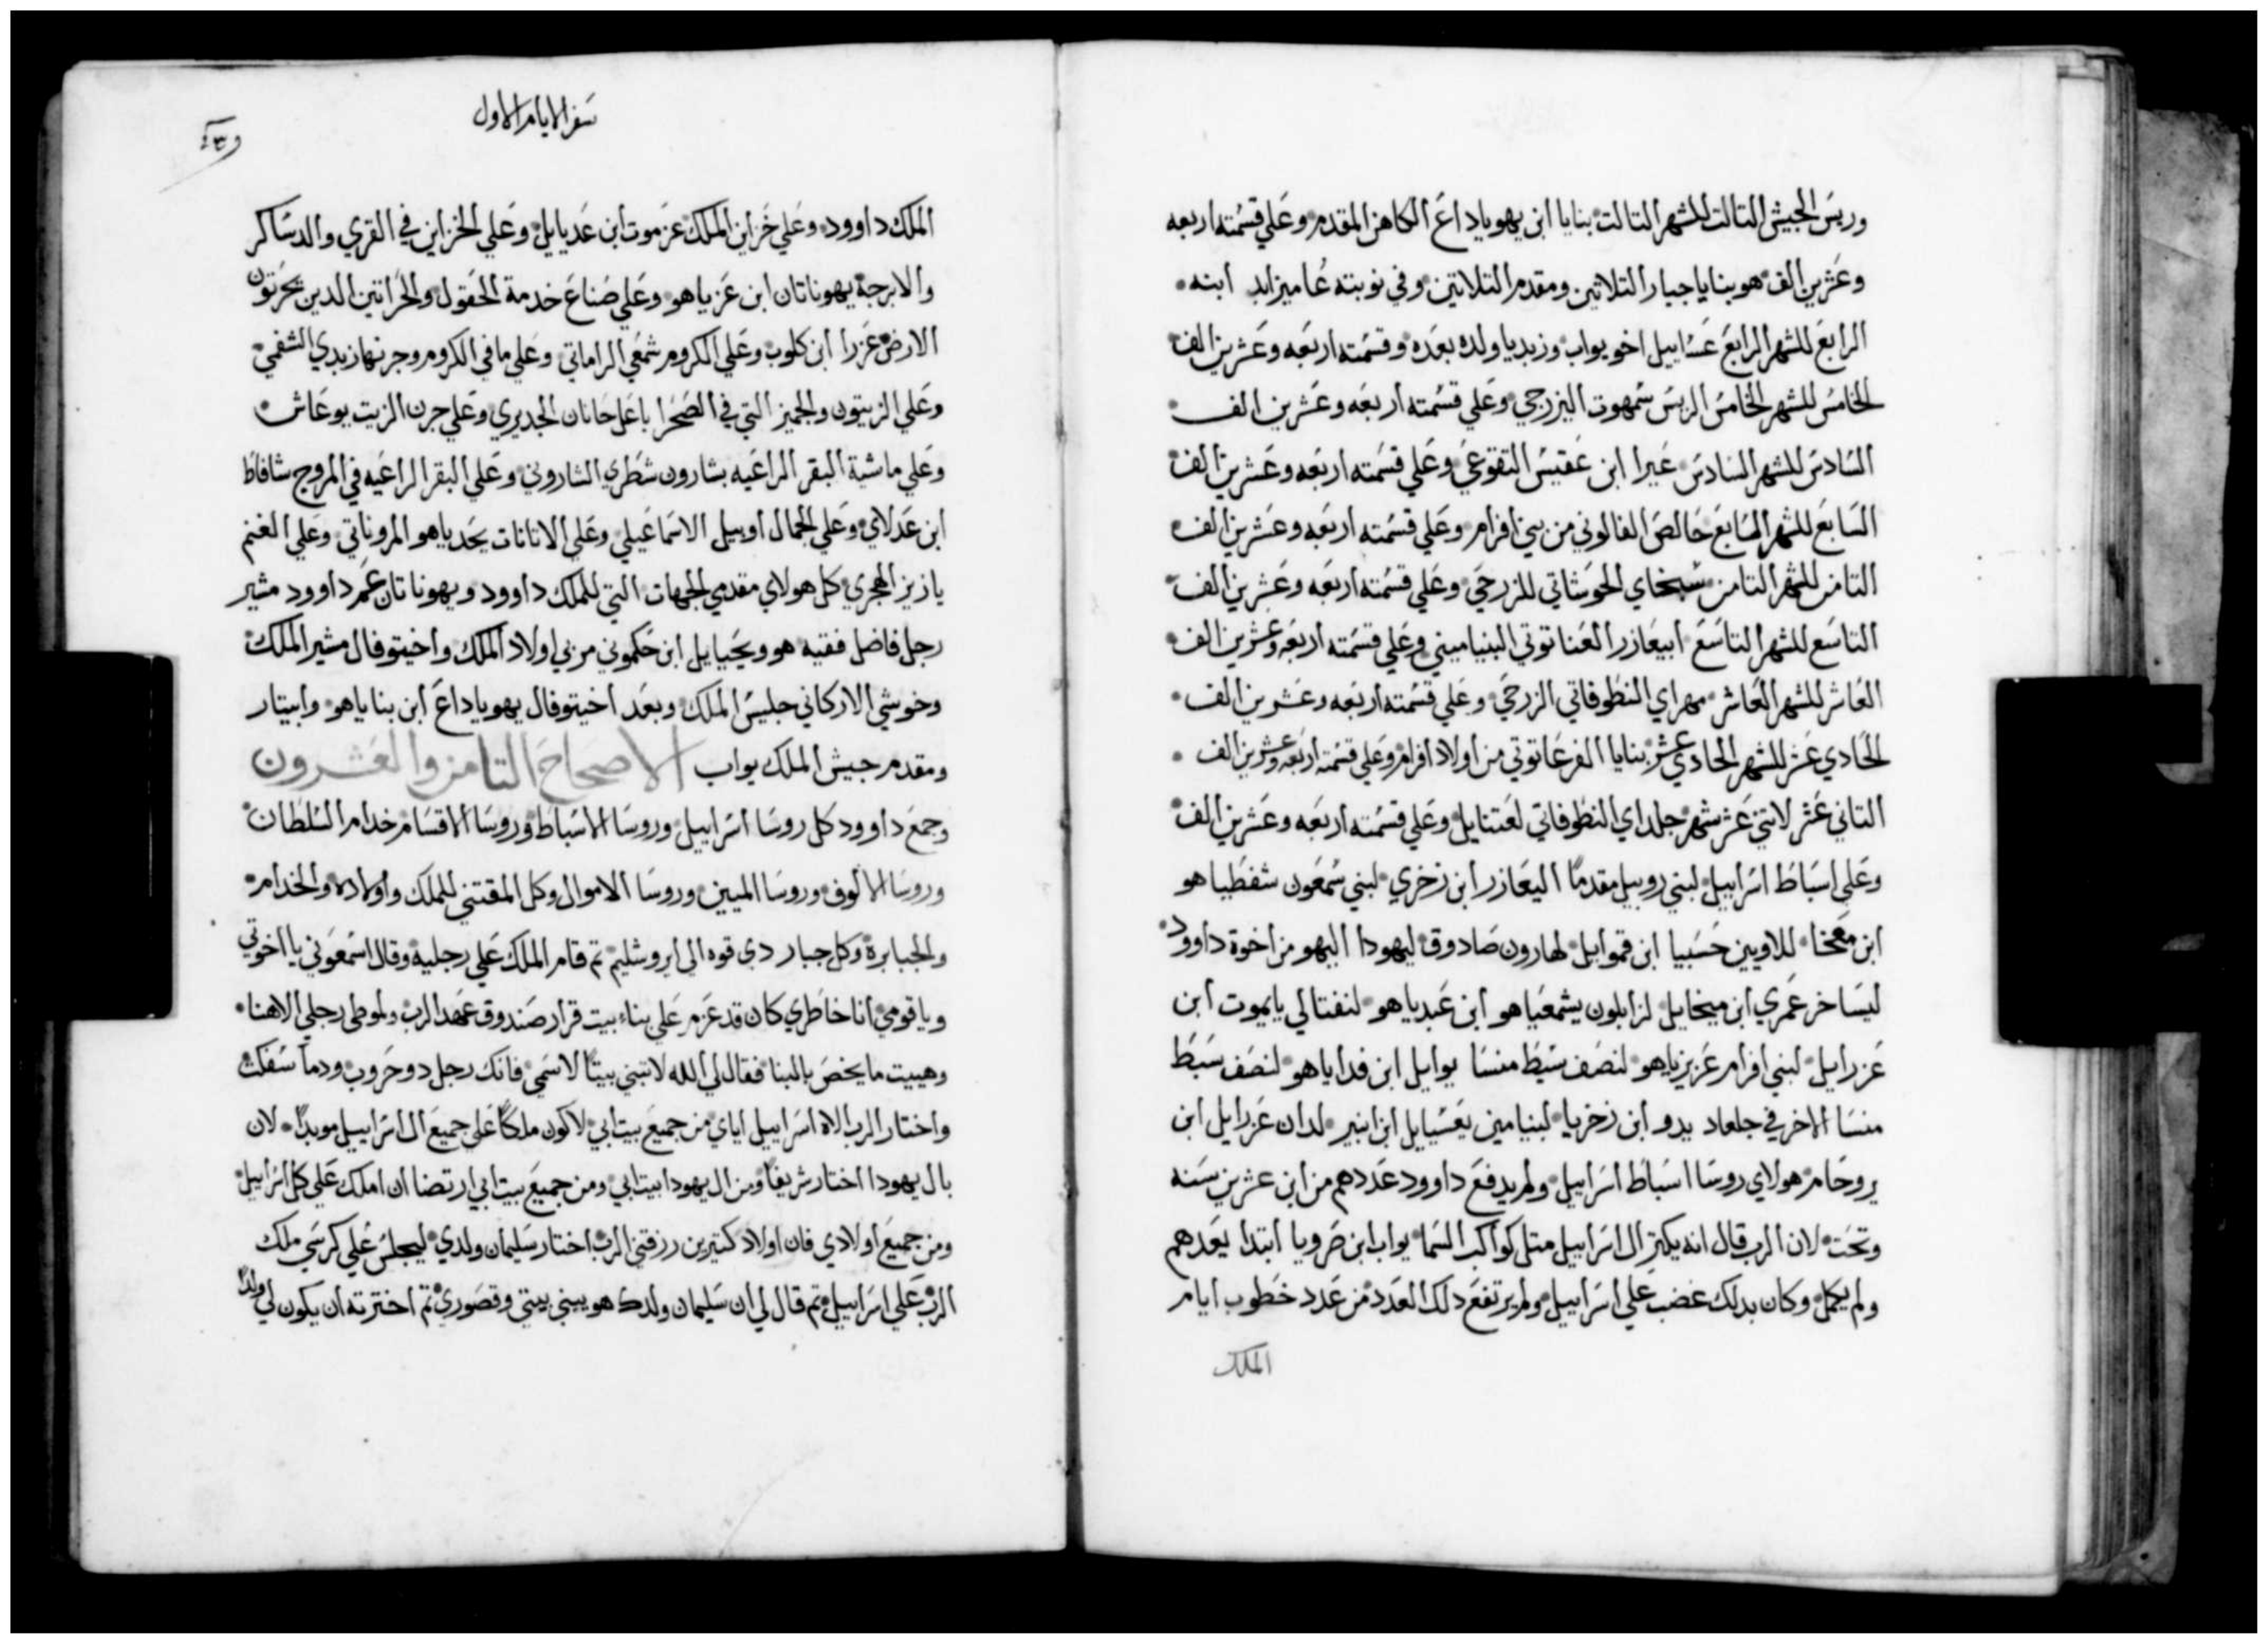 وريس الجيش التالت للشهر التالت بنايا ابن يهوياداع الكاهن المقدم وعلي قسمته اربعه
وعشرين الف هو بنايا جبار التلاتين ومقدم التلاتين وفي نوبته عاميزابد ابنه
الرابع للشهر الرابع عسابيل اخو يواب وزبديا ولده بعده وقسمته اربعه وعشرين الف
الخامس للشهر الخامس الريس سمهوت اليزرحي وعلي قسمته اربعه وعشرين الف
السادس للشهر السادس عيرا ابن عقيس التقوعي وعلي قسمته اربعه وعشرين الف
السابع للشهر السابع حالص الفالوني من بني افرام وعلي قسمته اربعه وعشرين الف
التامن للشهر التامن سبخاي الحوشاتي للزرحي وعلي قسمته اربعه وعشرين الف
التاسع للشهر التاسع ابيعازر العناتوتي البنياميني وعلي قسمته اربعه وعشرين الف
العاشر للشهر العاشر مهراي النطوفاتي الزرحي وعلي قسمته اربعه وعشرين الف
الحادي عشر للشهر الحادي عشر بنايا الفرعاتوتي من اولاد افرام وعلي قسمته اربعه وعشرين الف
التاني عشر لاتني عشر شهر جلداي النطوفاتي لعتنايل وعلي قسمته اربعه وعشرين الف
وعلي اسباط اسراييل لبني روبيل مقدما اليعازر ابن زخري لبني شمعون شفطيا هو
ابن معخا للاويين حسبيا ابن قموايل لهارون صادوق ليهودا اليهو من اخوة داوود
ليساخر عمري ابن ميخايل لزابلون يشمعيا هو ابن عبديا هو لنفتالي يايموت ابن
عزرايل لبني افرام عزيزياهو لنصف سبط منسا يوايل ابن فداياهو لنصف سبط
منسا الاخر في جلعاد يدو ابن زخريا لبنيامين يعسيايل ابن ابنير لدان عزرايل ابن
يروحام هولاي روسا اسباط اسراييل ولم يدفع داوود عددهم من ابن عشرين سنه
وتحت لان الرب قال انه يكتر ال اسراييل متل كواكب السما يواب ابن صرويا ابتدا يعدهم
ولم يكمل وكان بدلك غضب علي اسراييل ولم يرتفع دلك العدد من عدد خطوب ايام
الملك
سفر الايام الاول
الملك داوود وعلي خزاين الملك عزموت ابن عديابيل وعلي الخزاين في القري والدساكر
والابرجة يهوناتان ابن عزياهو وعلي صناع خدمة الحقول والحراتين الدين يحرتون
الارض عزرا ابن كلوب وعلي الكروم شمعي الراماتي وعلي ما في الكروم وجرنها زبدي الشفمي
وعلي الزيتون والجميز التي في الصحرا باعل حانان الجديري وعلي جرن الزيت يوعاش
وعلي ماشية البقر الراعيه بشارون شطري الشاروني وعلي البقر الراعيه في المروج شافاط
ابن عدلاي وعلي الجمال اوبيل الاسماعيلي وعلي الاتانات يحدياهو المروناتي وعلي الغنم
يازيز الهجري كل هولاي مقدمي الجهات التي للملك داوود ويهوناتان عم داوود مشير
رجل فاضل فقيه هو ويحيايل ابن حكموني مربي اولاد الملك واخيتوفال مشير الملك
وخوشي الاركاني جليس الملك وبعد اخيتوفال يهوياداع ابن بناياهو وابيتار
ومقدم جيش الملك يواب الاصحاح التامن والعشرون
وجمع داوود كل روسا اسراييل وروسا الاسباط وروسا الاقسام خدام السلطان
وروسا الالوف وروسا الميين وروسا الاموال وكل المقتني للملك واولاده والخدام
والجبابرة وكل جبار دي قوه الي ايروشليم تم قام الملك علي رجليه وقال اسمعوني يا اخوتي
ويا قومي انا خاطري كان قد عزم علي بناء بيت قرار صندوق عهد الرب ولموطي رجلي الاهنا
وهييت ما يخص بالبنا فقال لي الله لا تبني بيتا لاسمي فانك رجل دو حروب ودما سفكت
واختار الرب الاه اسراييل اياي من جميع بيت ابي لاكون ملكا علي جميع ال اسراييل موبدا لان
بال يهودا اختار شريفا ومن ال يهودا بيت ابي ومن جميع بيت ابي ارتضا ان املك علي كل اسراييل
ومن جميع اولادي فان اولاد كتيرين رزقني الرب اختار سليمان ولدي ليجلس علي كرسي ملك
الرب علي اسراييل تم قال لي ان سليمان ولدك هو يبني بيتي وقصوري تم اخترته ان يكون لي ولدا